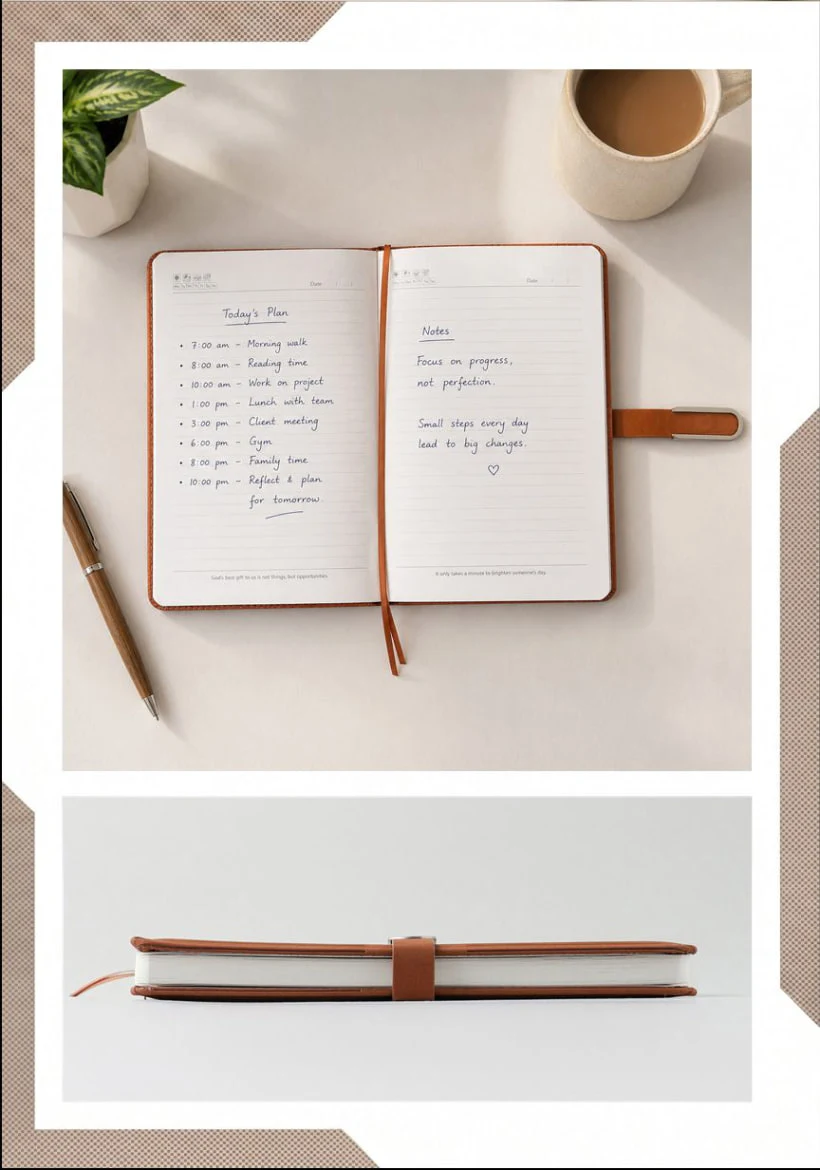 Date
Today's Plan
• 7:00 am - Morning walk
• 8:00 am - Reading time
• 10:00 am - Work on project
• 1:00 pm - Lunch with team
• 3:00 pm - Client meeting
• 6:00 pm - Gym
• 8:00 pm - Family time
• 10:00 pm - Reflect & plan
for tomorrow.
God's best gift to us is not things, but opportunities.
Date
Notes
Focus on progress,
not perfection.
Small steps every day
lead to big changes.
It only takes a minute to brighten someone's day.